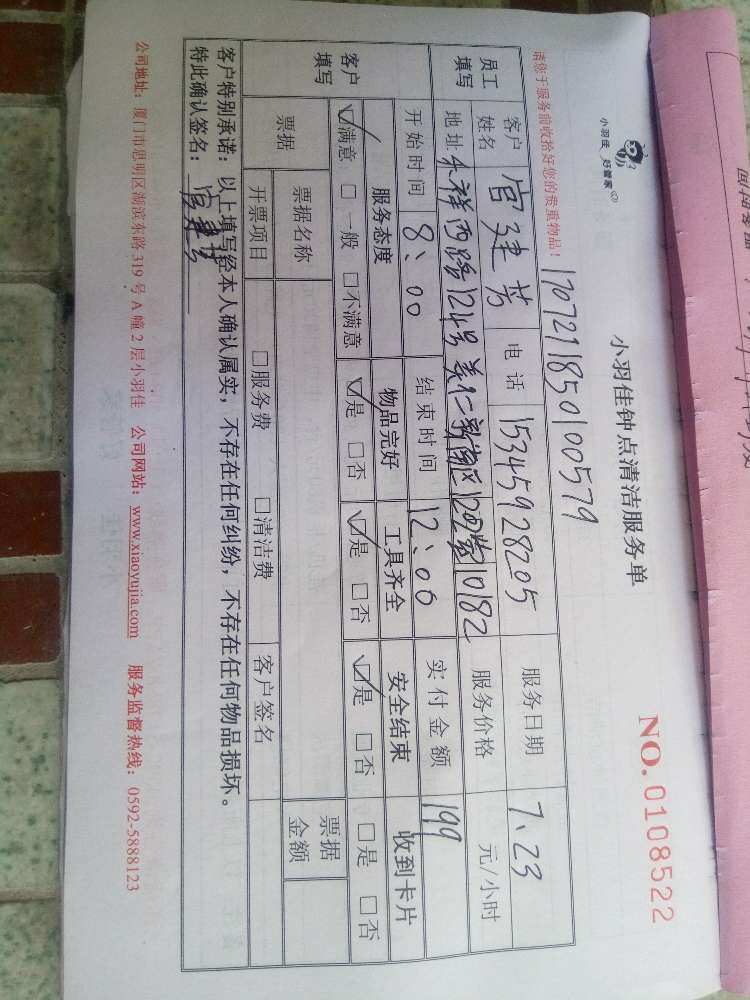 小羽佳 好管家
小羽佳钟点清洁服务单
NO.0108522
请您于服务前收拾好您的贵重物品！
1707211850100579
员工填写
客户姓名 官建芳 电话 15345928205 服务日期 7、23
地址 禾祥西路124号美仁新南区 0182 服务价格 元/小时
开始时间 8、00 结束时间 12、00 实付金额 199
客户填写
服务态度 物品完好 工具齐全 安全结束 收到卡片
☑满意 □一般 □不满意 ☑是 □否 ☑是 □否 ☑是 □否 □是 □否
票据 票据名称 票据金额
开票项目 □服务费 □清洁费 客户签名
客户特别承诺：以上填写经本人确认属实，不存在任何纠纷，不存在任何物品损坏。
特此确认签名：官建芳
公司地址：厦门市思明区湖滨东路319号A幢2层小羽佳 公司网站：www.xiaoyujia.com 服务监督热线：0592-5888123